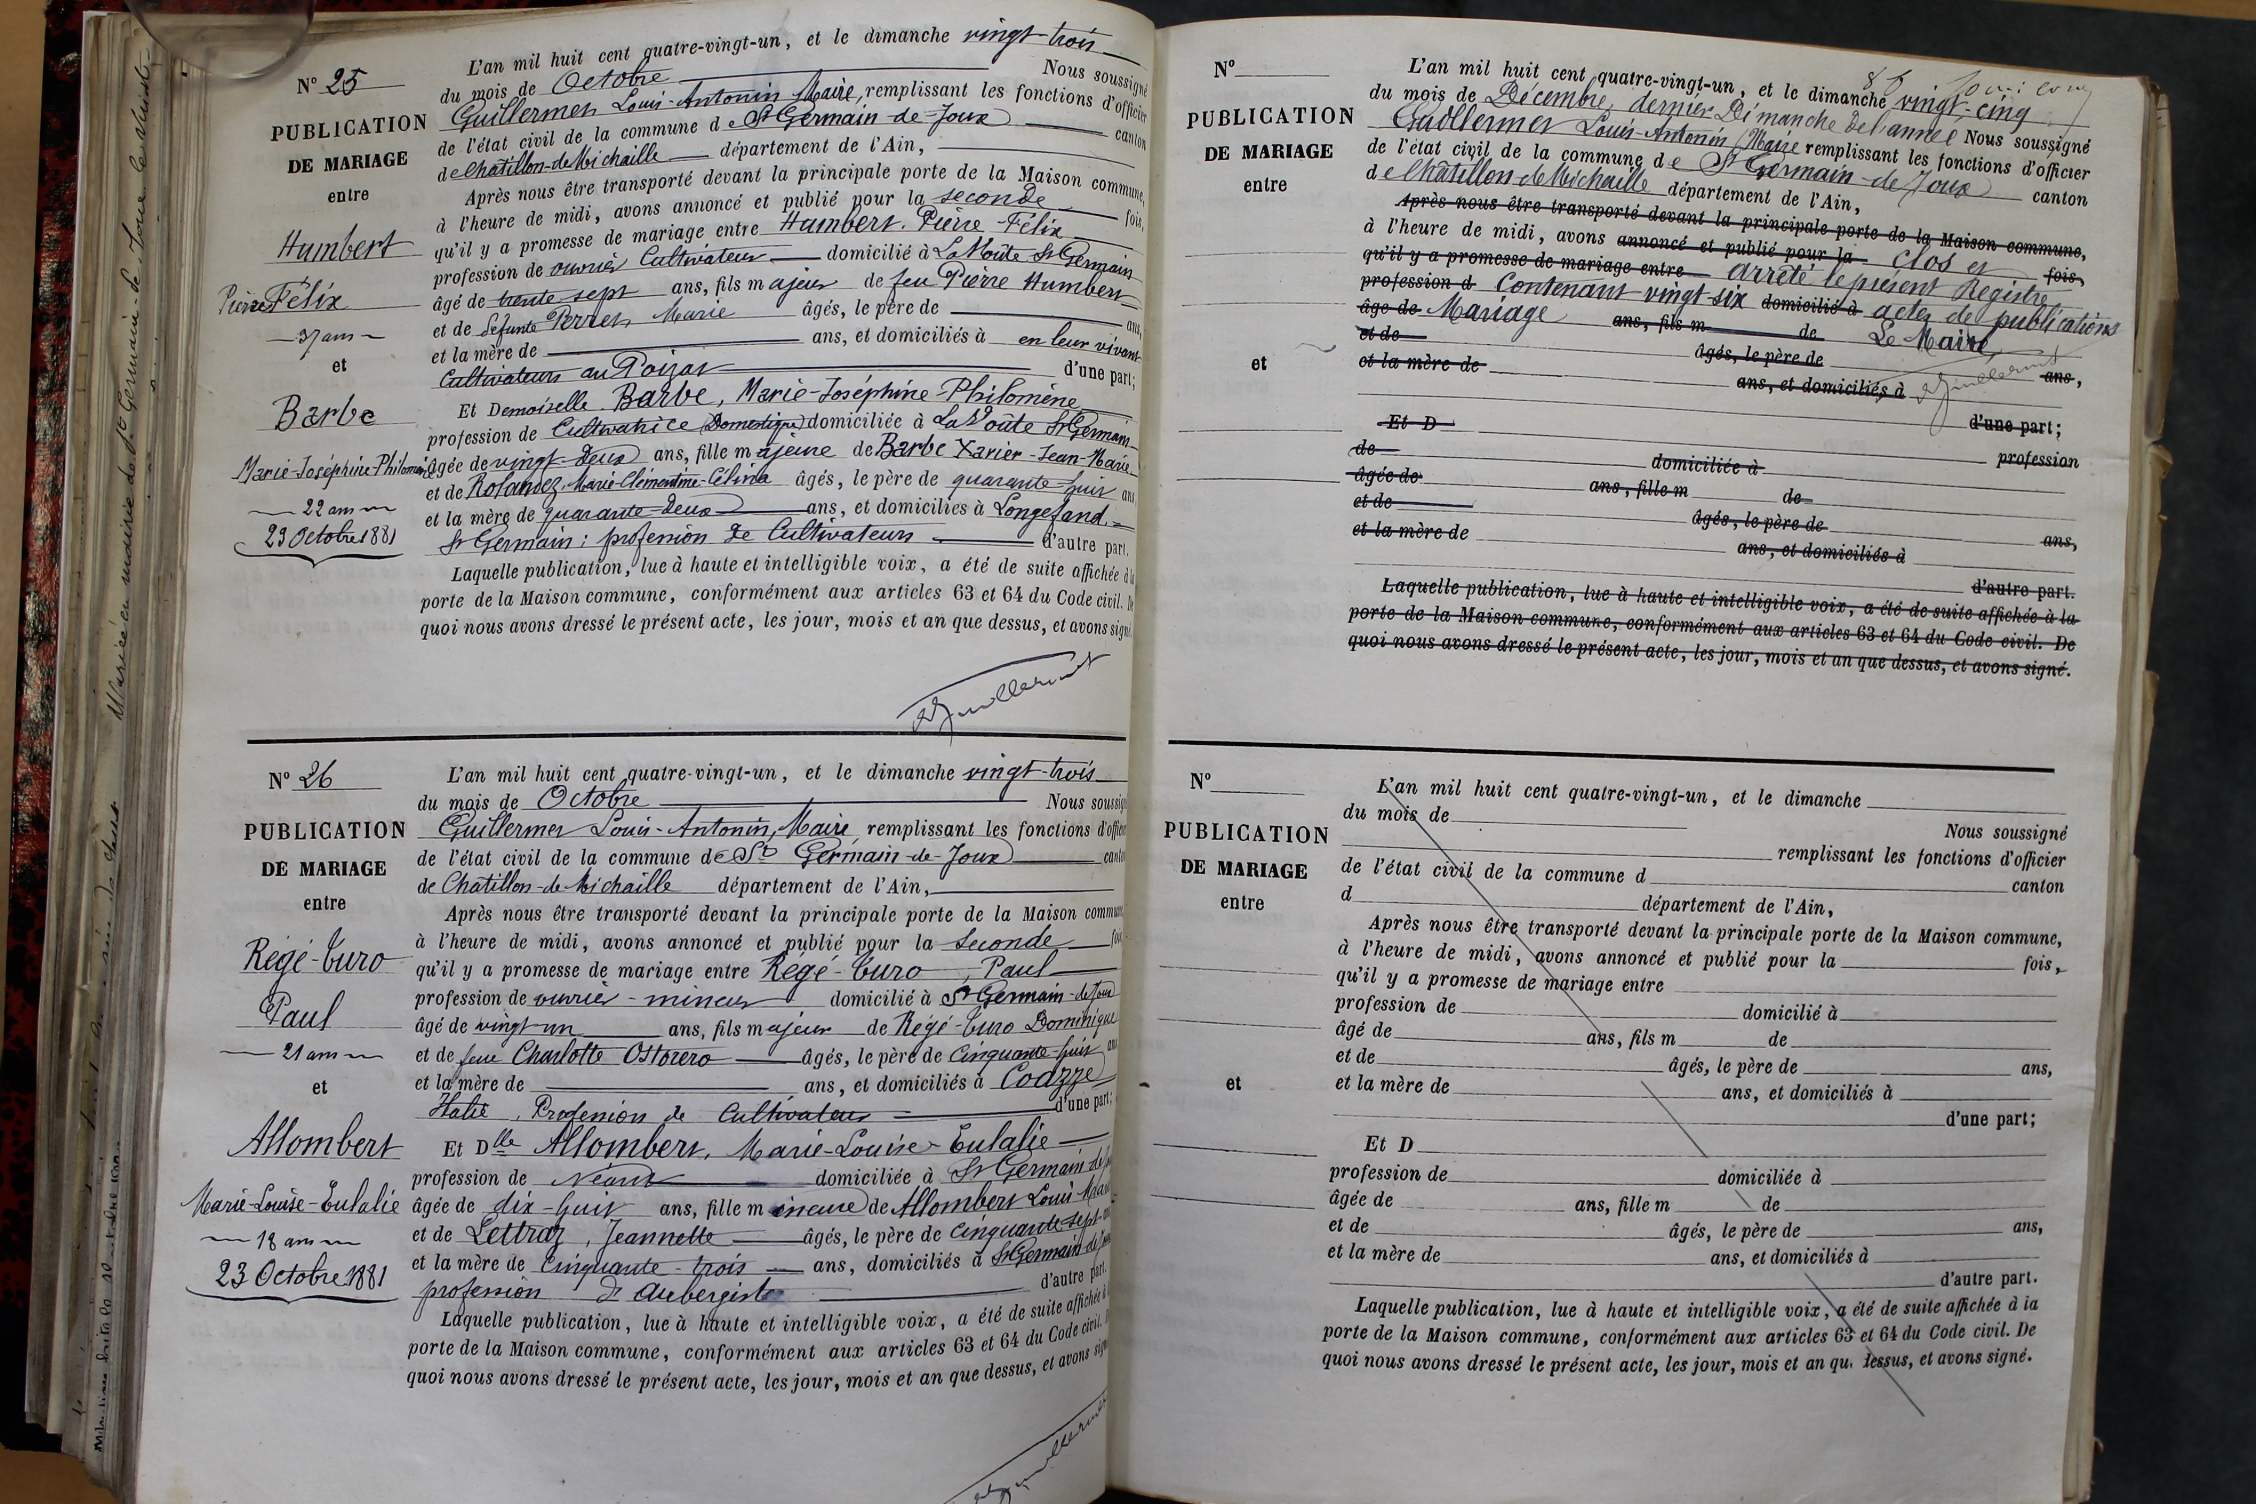 N° 25
PUBLICATION
DE MARIAGE
entre
Humbert
Pierre Félix
37 ans
et
Barbe
Marie-Joséphine-Philomène
22 ans
23 Octobre 1881
L'an mil huit cent quatre-vingt-un, et le dimanche vingt-trois
du mois de Octobre Nous soussigné
Guillermet Louis-Antonin Maire, remplissant les fonctions d'officier
de l'état civil de la commune de St Germain-de-Joux canton
de Chatillon-de-Michaille département de l'Ain,
Après nous être transporté devant la principale porte de la Maison commune,
à l'heure de midi, avons annoncé et publié pour la seconde fois,
qu'il y a promesse de mariage entre Humbert, Pierre-Félix
profession de ouvrier Cultivateur domicilié à La Voûte St Germain
âgé de trente sept ans, fils majeur de feu Pierre Humbert
et de défunte Perret Marie âgés, le père de ans,
et la mère de ans, et domiciliés à en leur vivant
Cultivateurs au Poizat d'une part;
Et Demoiselle Barbe, Marie-Joséphine-Philomène
profession de Cultivatrice (Domestique) domiciliée à La Voûte St Germain
âgée de vingt-deux ans, fille majeure de Barbe Xavier-Jean-Marie
et de Rolandez, Marie-Clémentine-Célina âgés, le père de quarante-huit ans,
et la mère de quarante-deux ans, et domiciliés à Longefand
St Germain; profession de Cultivateurs d'autre part.
Laquelle publication, lue à haute et intelligible voix, a été de suite affichée à la
porte de la Maison commune, conformément aux articles 63 et 64 du Code civil. De
quoi nous avons dressé le présent acte, les jour, mois et an que dessus, et avons signé
Guillermet
N° 26
PUBLICATION
DE MARIAGE
entre
Régé-Turo
Paul
21 ans
et
Allombert
Marie-Louise-Eulalie
18 ans
23 Octobre 1881
L'an mil huit cent quatre-vingt-un, et le dimanche vingt-trois
du mois de Octobre Nous soussigné
Guillermet Louis-Antonin, Maire remplissant les fonctions d'officier
de l'état civil de la commune de St Germain-de-Joux canton
de Chatillon-de-Michaille département de l'Ain,
Après nous être transporté devant la principale porte de la Maison commune
à l'heure de midi, avons annoncé et publié pour la seconde fois
qu'il y a promesse de mariage entre Régé-Turo, Paul
profession de ouvrier-mineur domicilié à St Germain-de-Joux
âgé de vingt un ans, fils majeur de Régé-Turo Dominique
et de feue Charlotte Ostorero âgés, le père de Cinquante-huit ans
et la mère de ans, et domiciliés à Coazze
Italie, Profession de Cultivateur d'une part;
Et Dlle Allombert, Marie-Louise-Eulalie
profession de Néant domiciliée à St Germain de Joux
âgée de dix-huit ans, fille mineure de Allombert Louis Marie
et de Lettraz, Jeannette âgés, le père de Cinquante sept ans
et la mère de Cinquante-trois ans, domiciliés à St Germain-de-Joux
profession d'Aubergiste d'autre part.
Laquelle publication, lue à haute et intelligible voix, a été de suite affichée à la
porte de la Maison commune, conformément aux articles 63 et 64 du Code civil.
quoi nous avons dressé le présent acte, les jour, mois et an que dessus, et avons signé
Guillermet
N°
PUBLICATION
DE MARIAGE
entre
et
L'an mil huit cent quatre-vingt-un, et le dimanche vingt-cinq
du mois de Décembre, dernier Dimanche de l'année Nous soussigné
Guillermet Louis-Antonin, Maire remplissant les fonctions d'officier
de l'état civil de la commune de St Germain-de-Joux canton
de Chatillon-de-Michaille département de l'Ain,
Après nous être transporté devant la principale porte de la Maison commune,
à l'heure de midi, avons annoncé et publié pour la clos et fois,
qu'il y a promesse de mariage entre arrêté le présent Registre
profession d Contenant vingt-six domicilié à actes de publications
âgé de Mariage ans, fils m de Le Maire,
et de âgés, le père de ans,
et la mère de ans, et domiciliés à Guillermet
d'une part;
Et D profession
de domiciliée à
âgée de ans, fille m de
et de âgés, le père de ans,
et la mère de ans, et domiciliés à
d'autre part.
Laquelle publication, lue à haute et intelligible voix, a été de suite affichée à la
porte de la Maison commune, conformément aux articles 63 et 64 du Code civil. De
quoi nous avons dressé le présent acte, les jour, mois et an que dessus, et avons signé.
N°
PUBLICATION
DE MARIAGE
entre
et
L'an mil huit cent quatre-vingt-un, et le dimanche
du mois de Nous soussigné
remplissant les fonctions d'officier
de l'état civil de la commune d canton
d département de l'Ain,
Après nous être transporté devant la principale porte de la Maison commune,
à l'heure de midi, avons annoncé et publié pour la fois,
qu'il y a promesse de mariage entre
profession de domicilié à
âgé de ans, fils m de
et de âgés, le père de ans,
et la mère de ans, et domiciliés à
d'une part;
Et D
profession de domiciliée à
âgée de ans, fille m de
et de âgés, le père de ans,
et la mère de ans, et domiciliés à
d'autre part.
Laquelle publication, lue à haute et intelligible voix, a été de suite affichée à la
porte de la Maison commune, conformément aux articles 63 et 64 du Code civil. De
quoi nous avons dressé le présent acte, les jour, mois et an que dessus, et avons signé.